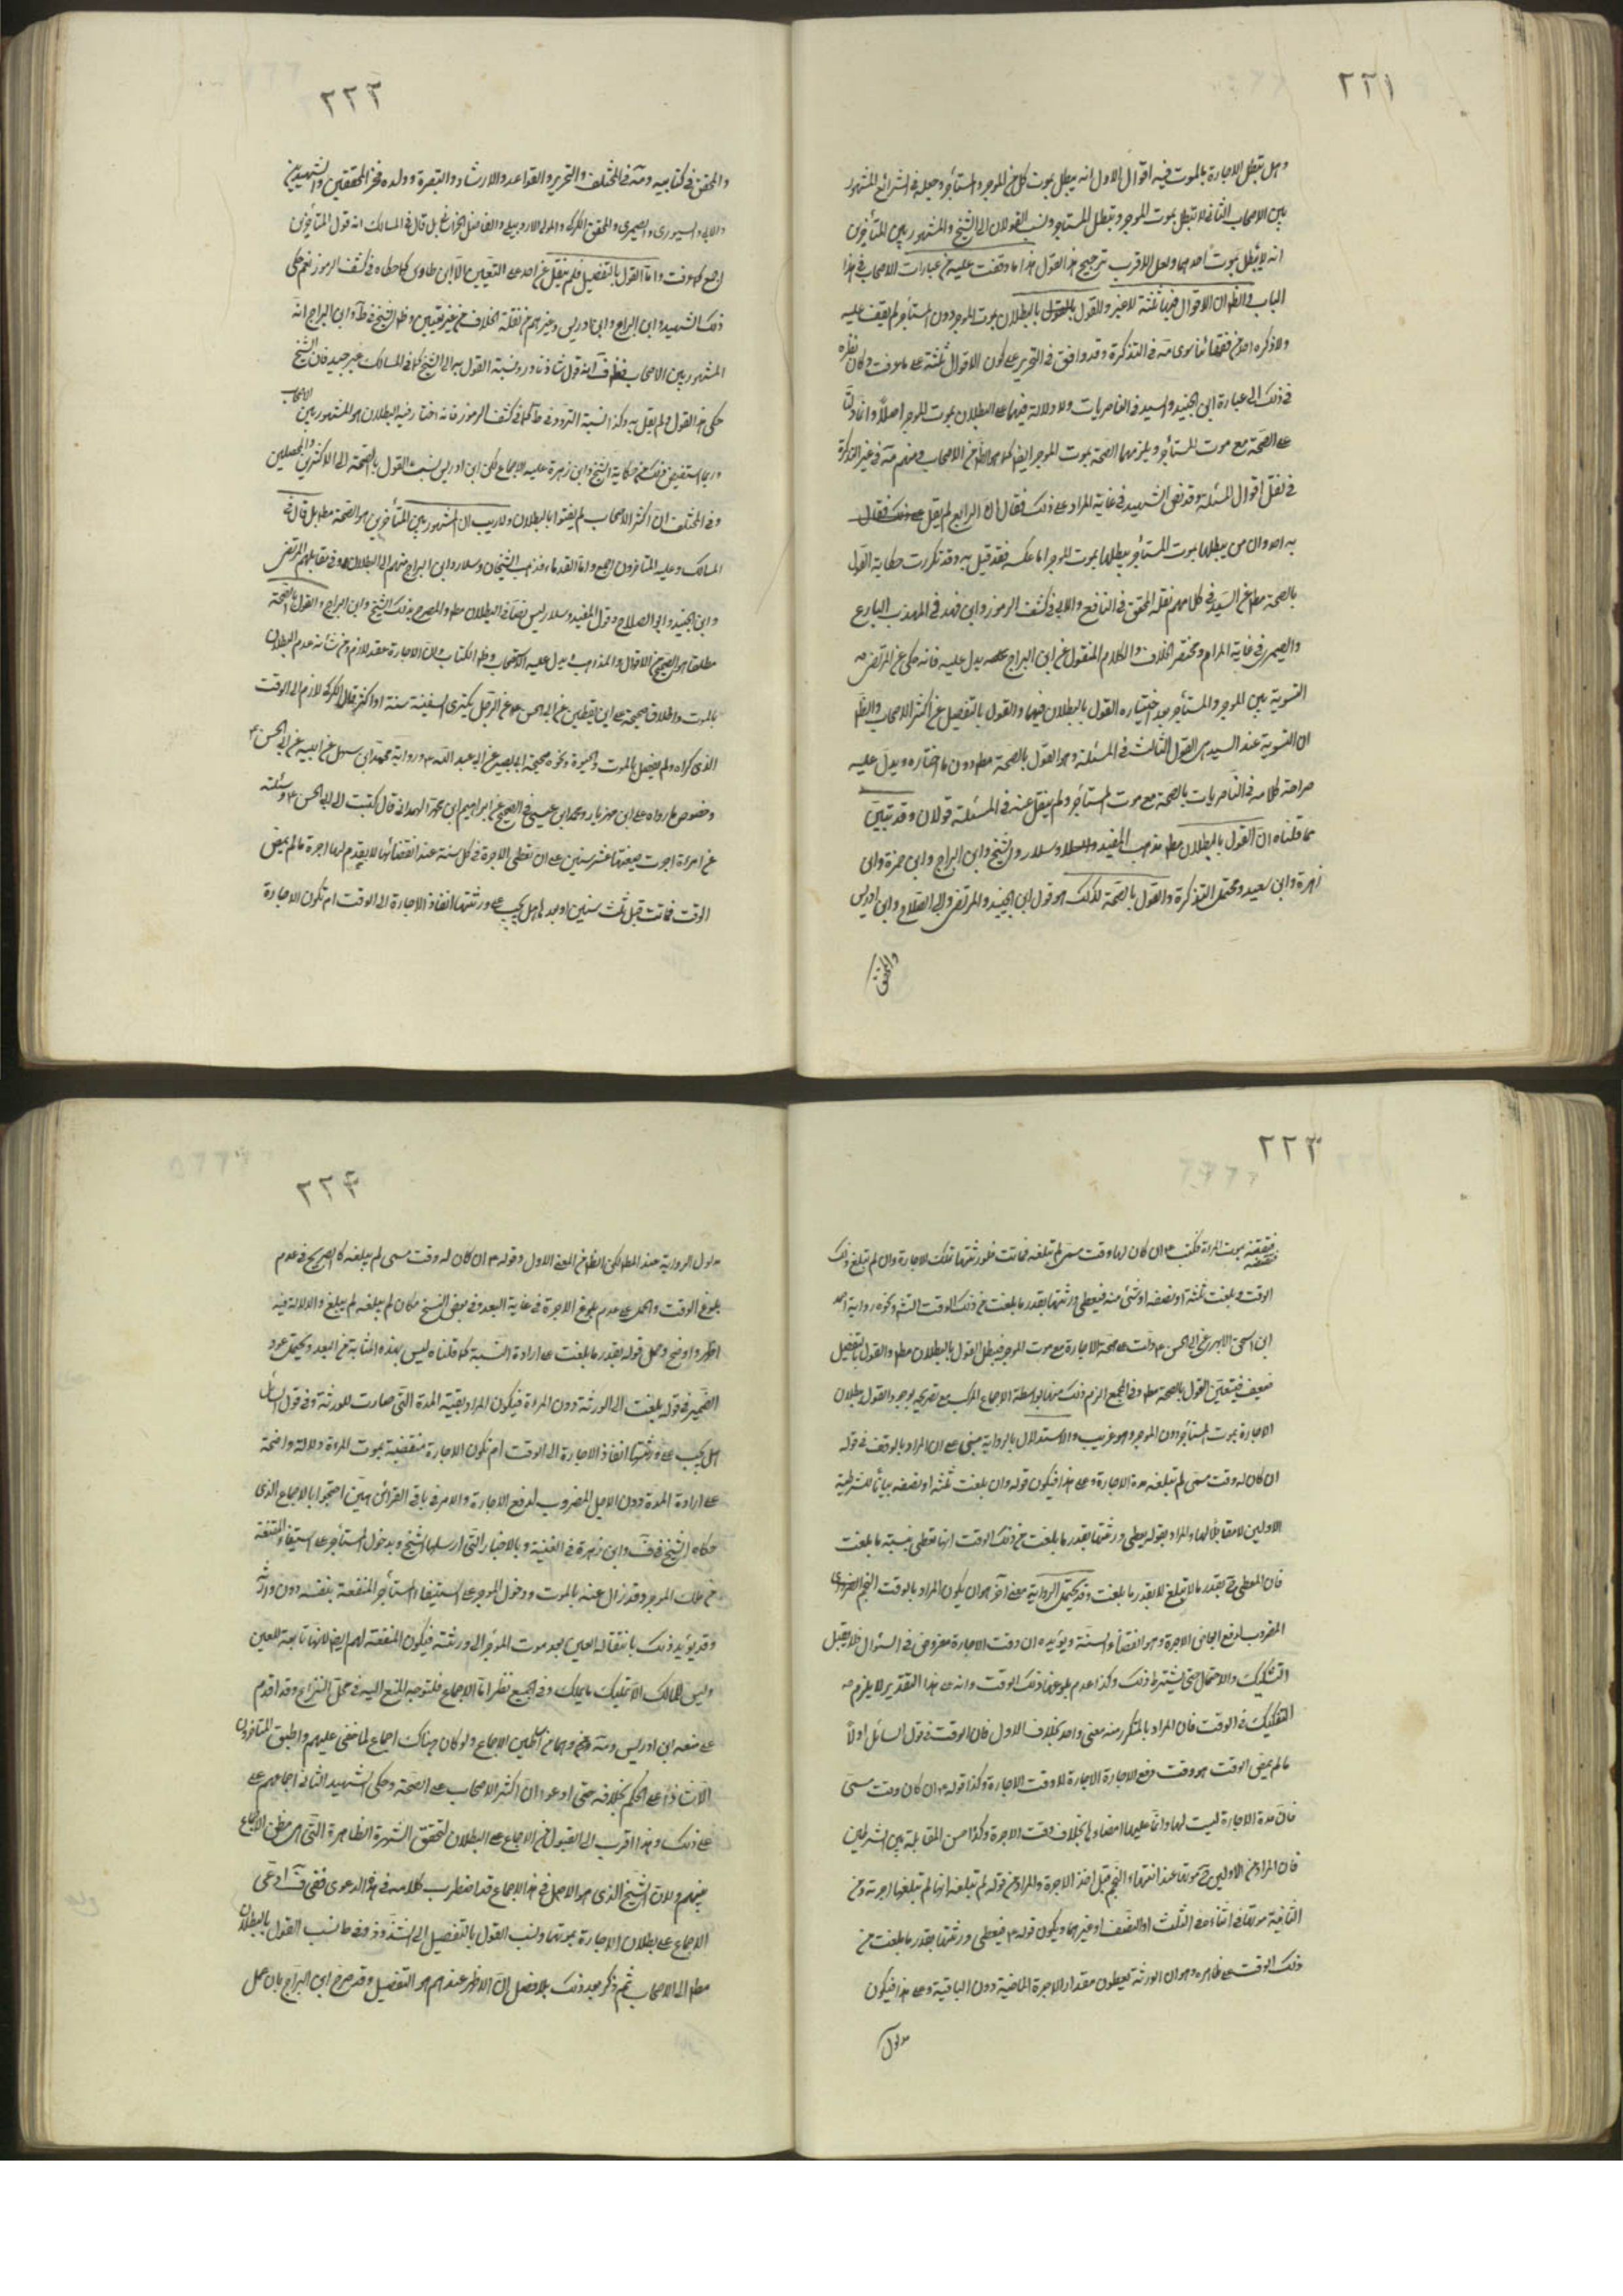 ٢٢١
وهل تبطل الاجارة بالموت فيه اقوال الاول انه يبطل بموت كل من الموجر والمستأجر وجعله في الشرائع المشهور
بين الاصحاب الثاني لا تبطل بموت الموجر وتبطل بالمستاجر ونسب القولان الى الشيخ والمشهور بين المتأخرين
انه لا يبطل بموت احدهما ولعل الاقرب ترجيح هذا القول هذا ما وقفت عليه من عبارات الاصحاب في هذا
الباب والظ ان الاقوال فيها ثلثة لا غير والقول بالبطلان بموت الموجر دون المستأجر لم يقف عليه
ولا ذكره احد من فقهائنا سوى مة في التذكرة وقد وافق في التحرير على كون الاقوال ثلثة على ما عرفت وكان نظره
في ذلك الى عبارة ابن الجنيد والسيد في الناصريات ولا دلالة فيهما على البطلان بموت الموجر اصلا وانما دلتا
على الصحة مع موت المستأجر ويلزمهما الصحة بموت الموجر ايضا كما هو الظ من الاصحاب ومنهم مة في غير التذكرة
في نقل اقوال المسئلة وقد نص الشهيد في غاية المراد على ذلك فقال ان الرابع لم يقل
به احد وان من يبطلها بموت المستأجر يبطلها بموت الموجر اما عكسه فقد قيل به وقد تكررت حكاية القول
بالصحة مط عن السيد في كلامهم نقله المحقق في النافع والابي في كشف الرموز وابن فهد في المهذب البارع
والصيمري في غاية المرام ومختصر الخلاف والكلام المنقول عن ابن البراج يدل عليه فانه حكى عن المرتضى ره
التسوية بين الموجر والمستأجر بعد اختياره القول بالبطلان فيهما والقول بالتفصيل عن اكثر الاصحاب والظ
ان التسوية عند السيد هي القول الثالث في المسئلة وهو القول بالصحة مط دون ما اختاره ويدل عليه
صراحة كلامه في الناصريات بالصحة مع موت المستأجر ولم ينقل عنه في المسئلة قولان وقد تبين
مما قلناه ان القول بالبطلان مط مذهب المفيد وسلار والشيخ وابن البراج وابن حمزة وابن
زهرة وابن سعيد ومحتمل التذكرة والقول بالصحة كذلك هو قول ابن الجنيد والمرتضى وابي الصلاح وابن ادريس
والمحقق
٢٢٢
والمحقق في كتابيه ومة في المختلف والتحرير والقواعد والارشاد والتبصرة وولده فخر المحققين والشهيدين
والابي والسيوري والصيمري والمحقق الكركي والمولى الاردبيلي والفاضل الخراساني بل قال في المسالك انه قول المتأخرين
اجمع كما عرفت واما القول بالتفصيل فلم ينقل عن احد على التعيين الا ابن طاوس كما حكاه في كشف الرموز نعم حكى
ذلك الشهيد وابن البراج وابن ادريس وغيرهم من نقلة الخلاف من غير تعيين وظ الشيخ في ط وابن البراج انه
المشهور بين الاصحاب انه قول شاذ نادر ونسبة القول به الى الشيخ كما في المسالك غير جيد فان الشيخ
حكى هذا القول ولم يقل به وكذا نسبة التردد في ط كما في كشف الرموز فانه اختار فيه البطلان هو المشهور بين الاصحاب
وربما استفيض ذلك من حكاية الشيخ وابن زهرة عليه الاجماع لكن ابن ادريس نسب القول بالصحة الى الاكثرين والمحصلين
وفي المختلف ان اكثر الاصحاب لم يفتوا بالبطلان ولا ريب ان المشهور بين المتأخرين هو الصحة مط بل قال في
المسالك وعليه المتاخرون اجمع واما القدماء فذهب الشيخان وسلار وابن البراج منهم الى البطلان وفي مقابلهم المرتضى
وابن الجنيد وابي الصلاح وقول المفيد وسلار ليس نصا في البطلان مط والمصرح بذلك الشيخ وابن البراج والقول بالصحة
مطلقا هو الصحيح من الاقوال والمذاهب ويدل عليه الاستصحاب وظ الكتاب وان الاجارة عقد لازم ومن شأنه عدم البطلان
بالموت واطلاق صحيحة علي ابن يقطين عن ابي الحسن ع عن الرجل يكترى السفينة سنة او اكثر قال الكرى لازم الى الوقت
الذي كراه ولم يفصل بالموت والحيوة ونحوه صحيحة ابي بصير عن ابي عبد الله ع ورواية محمد ابن سهل عن ابيه عن ابي الحسن ع
وخصوص ما رواه علي ابن مهزيار ومحمد ابن عيسى في الصحيح عن ابراهيم ابن محمد الهمداني قال كتبت الى ابي الحسن ع وسئلته
عن امرءة اجرت ضيعتها عشر سنين على ان تعطى الاجرة في كل سنة عند انقضائها لا يقدم لها اجرة ما لم يمض
الوقت فماتت قبل ثلث سنين او بعدها هل يجب على ورثتها انفاذ الاجارة الى الوقت ام تكون الاجارة
٢٢٣
منتقضة بموت المراة فكتب ع ان كان لها وقت مسمى لم تبلغه فماتت فلورثتها تلك الاجارة وان لم تبلغ ذلك
الوقت وبلغت ثلثه او نصفه او شئ منه فيعطى ورثتها بقدر ما بلغت من ذلك الوقت انش ونحوه رواية احمد
ابن اسحق الابهري عن ابي الحسن ع دلت على صحة الاجارة مع موت الموجر فيبطل القول بالبطلان مط والقول بالتفصيل
ضعيف فيتعين القول بالصحة مط وفي المجمع الزم ذلك منهما بواسطة الاجماع المركب مع تصريحه بوجود القول ببطلان
الاجارة بموت المستأجر دون الموجر وهو غريب والاستدلال بالرواية مبني على ان المراد بالوقت في قوله
ان كان له وقت مسمى لم تبلغه مدة الاجارة وعلى هذا فيكون قوله وان بلغت ثلثه او نصفه بيانا للشرطية
الاولى لا مقابلا لها والمراد بقوله يعطى ورثتها بقدر ما بلغت من ذلك الوقت انها تعطى بنسبة ما بلغت
فان المعطى ح بقدر ما لا تبلغ لا بقدر ما بلغت وقد يحتمل الرواية معنى آخر هو ان يكون المراد بالوقت النجم
المضروب لدفع الاجرة وهو انقضاء السنة ويؤيده ان وقت الاجارة مفروض في السئوال فلا يقبل
التشكيك والاحتمال حتى يشترط ذلك وكذا عدم بلوغها ذلك الوقت وانه على هذا التقدير لا يلزم
التفكيك في الوقت فان المراد بالمتكرر منه معنى واحد بخلاف الاول فان الوقت في قول السائل اولا
ما لم يمض الوقت هو وقت دفع الاجارة لا وقت الاجارة وكذا قوله ع ان كان وقت مسمى
فان مدة الاجارة ليست لها وانما عليها امضاؤها بخلاف وقت الاجرة وكذا حسن المقابلة بين الشرطين
فان المراد من الاولى ح موتها عند انتهاء النجم قبل اخذ الاجرة والمراد من قوله لم تبلغه انها لم تبلغها اجرته ومن
الثانية موتها في اثناءه في الثلث او النصف او غيرهما ويكون قوله ع فيعطى ورثتها بقدر ما بلغت من
ذلك الوقت على ظاهره وهو ان الورثة يعطون مقدار الاجرة الماضية دون الباقية وعلى هذا فيكون
مدلول
٢٢٤
مدلول الرواية ضد المط لكن الظ من المعنى الاول وقوله ع ان كان له وقت مسمى لم يبلغه كالصريح في عدم
بلوغ الوقت والحمل على عدم بلوغ الاجرة في غاية البعد وفي بعض النسخ مكان لم يبلغه لم يبلغ والدلالة فيه
اظهر واوضح وحمل قوله بقدر ما بلغت على ارادة النسبة كما قلناه ليس بهذه المثابة من البعد ويحتمل عود
الضمير في قوله بلغت الى الورثة دون المراة فيكون المراد بقية المدة التي صارت للورثة وفي قول السائل
هل يجب على ورثتها انفاذ الاجارة الى الوقت ام تكون الاجارة منقضية بموت المرءة دلالة واضحة
على ارادة المدة دون الاجل المضروب لدفع الاجارة والامر في باقي القرائن هين احتجوا بالاجماع الذي
حكاه الشيخ في ف وابن زهرة في الغنية وبالاخبار التي ارسلها الشيخ وبدخول المستأجر على استيفاء المنفعة
من ملك الموجر وقد زال عنه بالموت ودخول الموجر على استيفاء المستأجر المنفعة بنفسه دون وارثه
وقد يؤيد ذلك بانتقال العين بعد موت الموجر الى ورثته فيكون المنفعة لهم ايضا لانها تابعة للعين
وليس للمالك الا تمليك ما يملك وفي الجميع نظر اما الاجماع فلتوجه المنع اليه في محل النزاع وقد اقدم
على منعه ابن ادريس ومة وهما من اساطين الاجماع ولو كان هناك اجماع لما خفى عليهم واطبق المتاخرون
الا شاذا على الحكم بخلافه حتى ادعوا ان اكثر الاصحاب على الصحة وحكى الشهيد الثاني اجماعهم على
على ذلك وهذا اقرب الى القبول من الاجماع على البطلان لتحقق الشهرة الظاهرة التي هي مظنة الاجماع
بينهم ولان الشيخ الذي هو الاصل في هذا الاجماع قد اضطرب كلامه في هذه الدعوى ففي ف ادعى
الاجماع على بطلان الاجارة بموتهما ونسب القول بالتفصيل الى الشذوذ وفي ط نسب القول بالبطلان
مط الى الاصحاب ثم ذكر بعد ذلك بلا فصل ان الاظهر عندهم هو التفصيل وقد صرح ابن البراج بان عمل